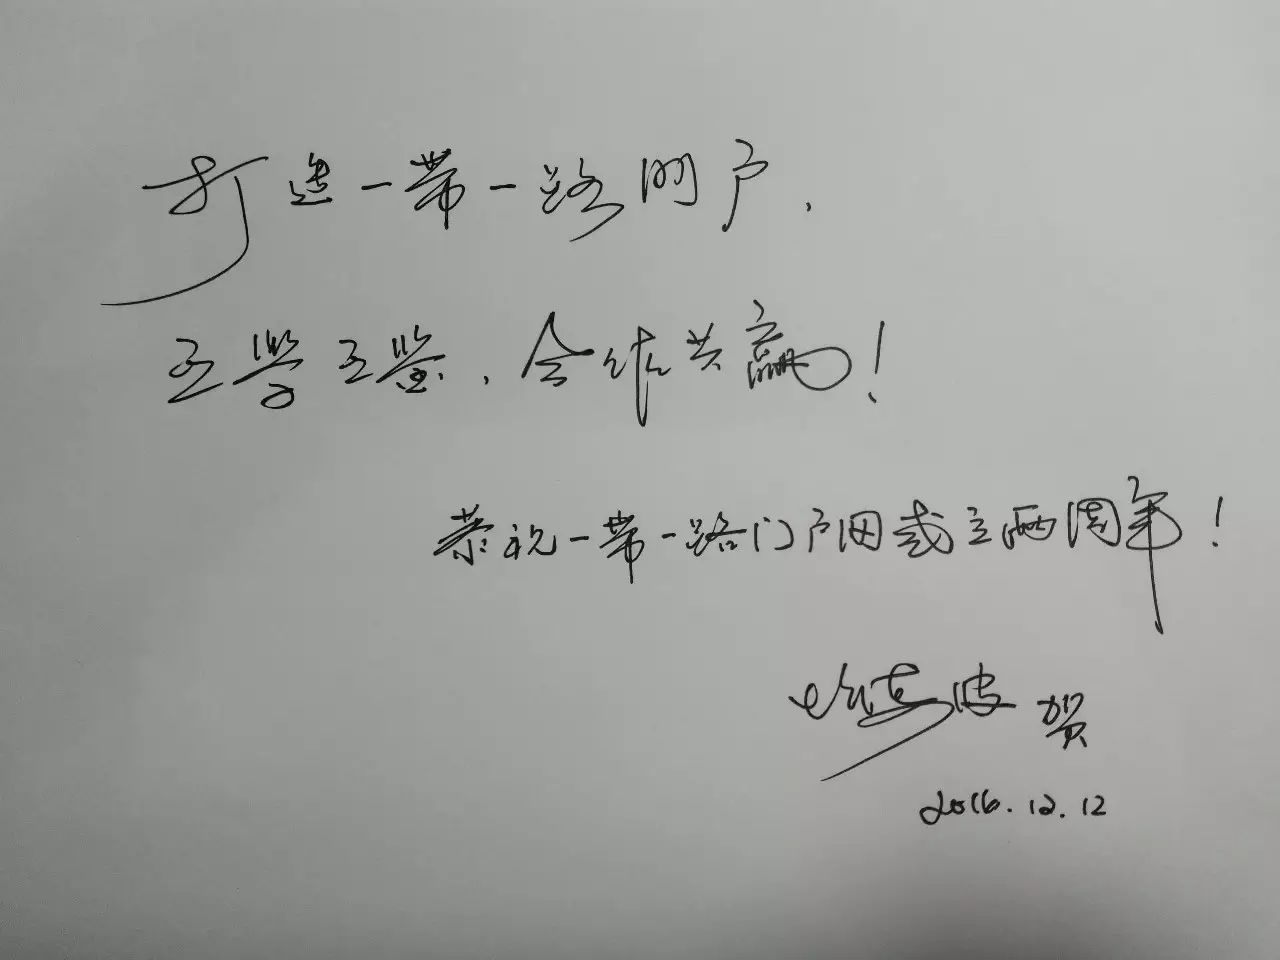 打造一带一路网户，
互学互鉴，合作共赢！
恭祝一带一路门户网成立两周年！
波 贺
2016.12.12